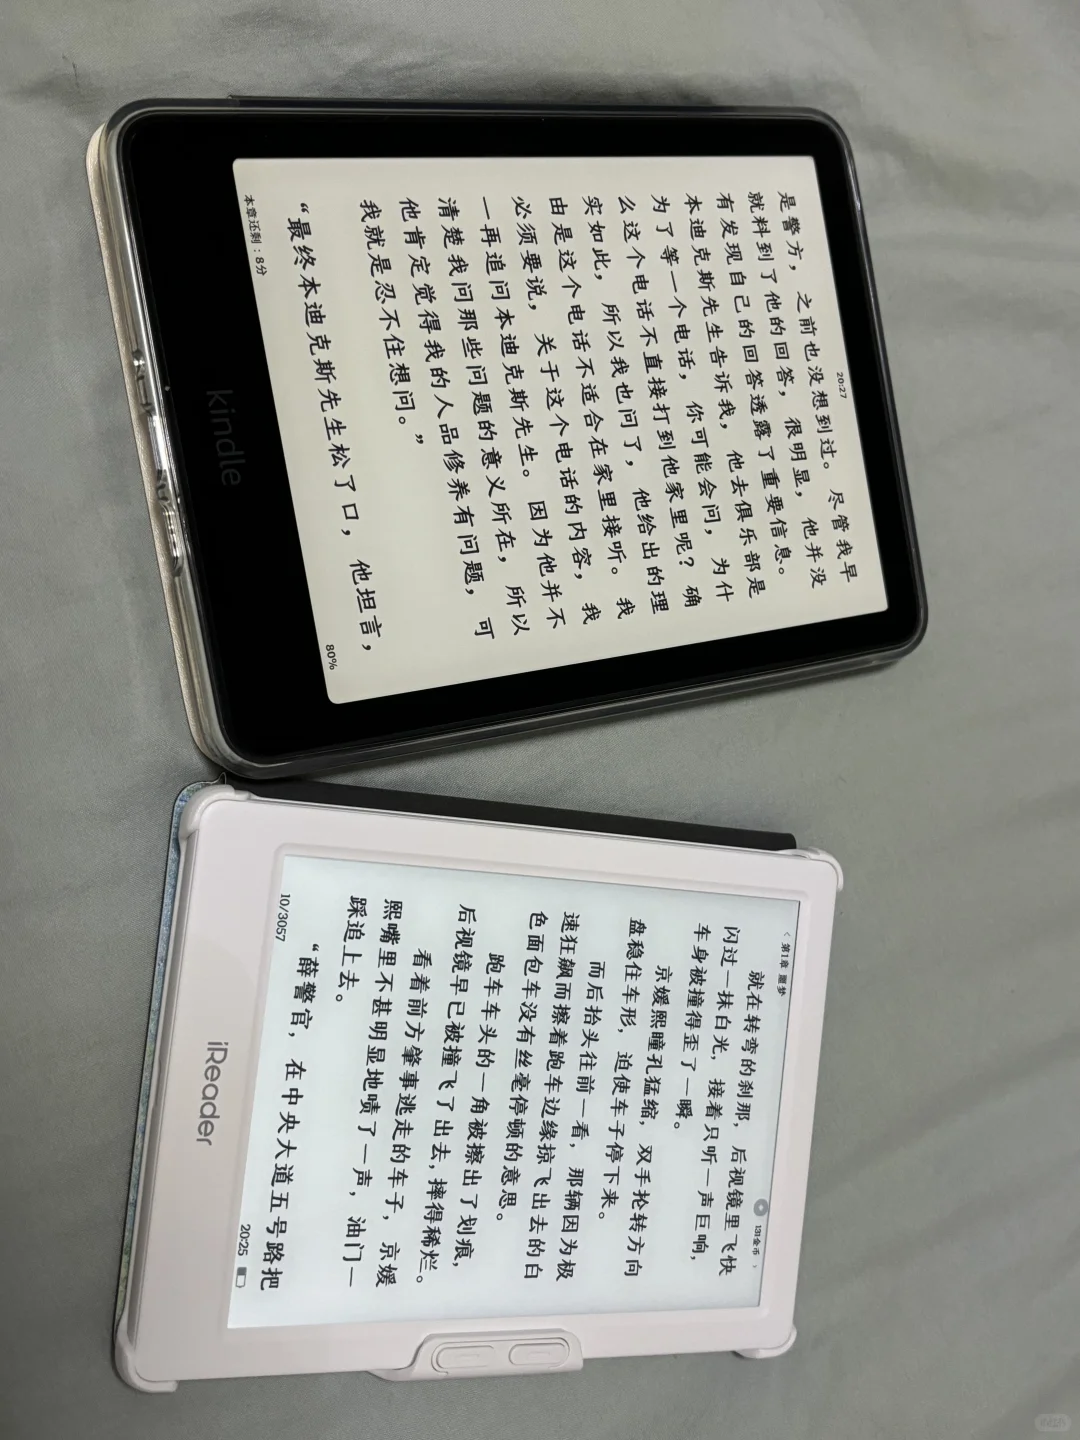 20:27
是警方，之前也没想到过。尽管我早
就料到了他的回答，很明显，他并没
有发现自己的回答透露了重要信息。
本迪克斯先生告诉我，他去俱乐部是
为了等一个电话，你可能会问，为什
么这个电话不直接打到他家里呢？确
实如此，所以我也问了，他给出的理
由是这个电话不适合在家里接听。我
必须要说，关于这个电话的内容，我
一再追问本迪克斯先生。因为他并不
清楚我问那些问题的意义所在，所以
他肯定觉得我的人品修养有问题，可
我就是忍不住想问。”
“最终本迪克斯先生松了口，他坦言，
本章还剩：8分 80%
kindle
< 第1章 噩梦 131金币 >
就在转弯的刹那，后视镜里飞快
闪过一抹白光，接着只听一声巨响，
车身被撞得歪了一瞬。
京媛熙瞳孔猛缩，双手抡转方向
盘稳住车形，迫使车子停下来。
而后抬头往前一看，那辆因为极
速狂飙而擦着跑车边缘掠飞出去的白
色面包车没有丝毫停顿的意思。
跑车车头的一角被擦出了划痕，
后视镜早已被撞飞了出去，摔得稀烂。
看着前方肇事逃走的车子，京媛
熙嘴里不甚明显地啧了一声，油门一
踩追上去。
“薛警官，在中央大道五号路把
10/3057 20:25
iReader